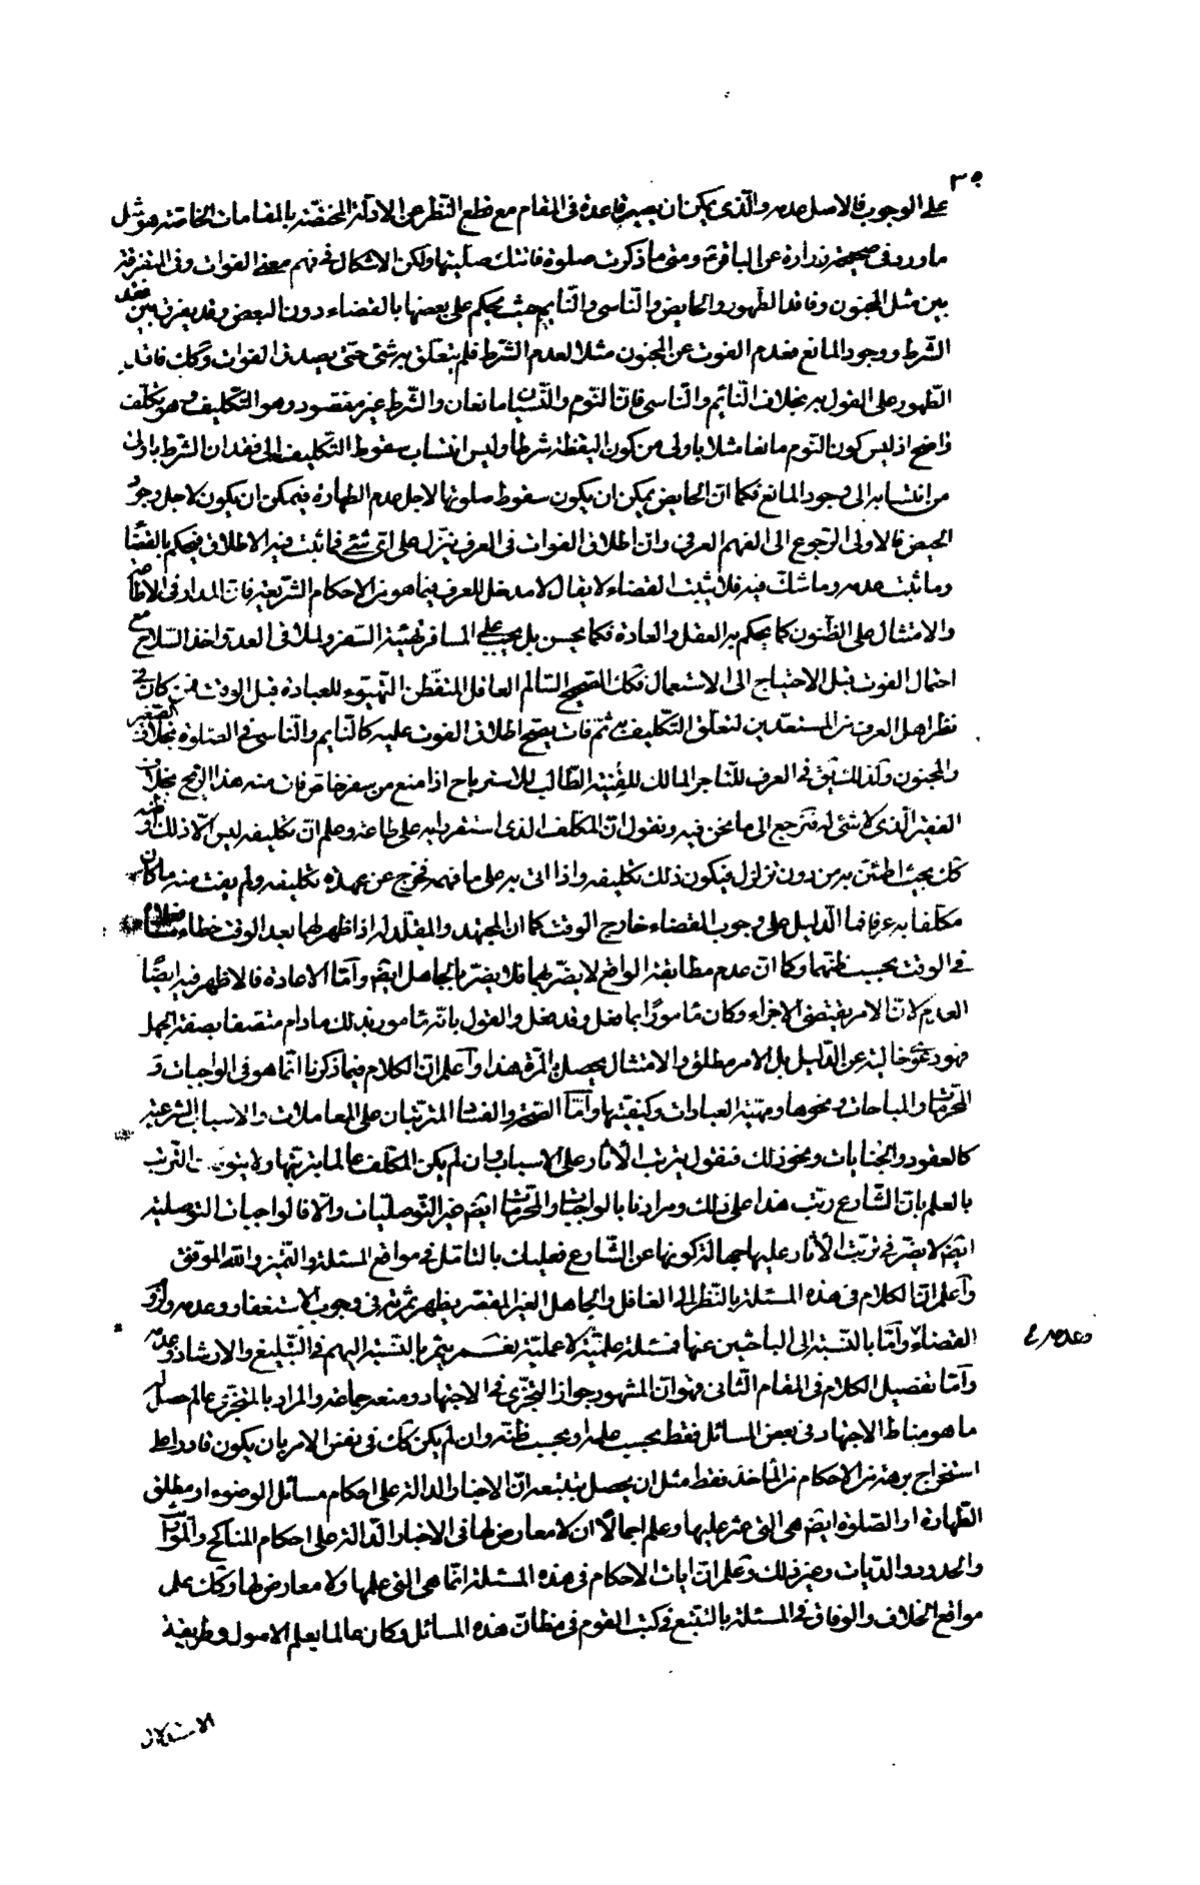 على الوجوب فالاصل عدمه والّذى يمكن ان يصير قاعدة فى المقام مع قطع النّظر عن الادلّة المختصّة بالمقامات الخاصّة هو مثل
ما ورد فى صحيحة زرارة عن الباقر ع ومتى ما ذكرت صلوة فاتتك صلّيتها ولكن الاشكال فى فهم معنى الفوات وفى التفرقة
بين مثل المجنون وفاقد الطّهور والحايض والنّاسى والنّايم حيث يحكم على بعضها بالقضاء دون البعض وقد يفرق بين فقد
الشّرط ووجود المانع فعدم الفوت عن المجنون مثلا لعدم الشّرط فلم يتعلّق به شئ حتّى يصدق الفوات وكك فاقد
الطّهور على القول به بخلاف النّائم والنّاسى فانّ النّوم والنّسيان مانعان والشّرط غير مفقود وهو التّكليف وهو تكلّف
واضح اذ ليس كون النّوم مانعا مثلا باولى من كون اليقظة شرطا وليس انتساب سقوط التّكليف الى فقدان الشّرط باولى
من انتسابه الى وجود المانع فكما انّ الحايض يمكن ان يكون سقوط صلوتها لاجل عدم الطهارة فيمكن ان يكون لاجل وجود
الحيض فالاولى الرّجوع الى الفهم العرفى وانّ اطلاق الفوات فى العرف ينزّل على اىّ شئ فما ثبت فيه الاطلاق فيحكم بالقضاء
وما ثبت عدمه وما شكّ فيه فلا يثبت القضاء لا يقال لا مدخل للعرف فيما هو من الاحكام الشّرعيّة فانّ المدار فى الاطاعة
والامتثال على الظّنون كما يحكم به العقل والعادة فكما يحسن بل يجب على المسافر تهيئة السّفر ولملاقى العدوّ اخذ السّلاح مع
احتمال الفوت قبل الاحتياج الى الاستعمال فكك الصّحيح السّالم العاقل المتفطّن التّهيّؤ للعبادة قبل الوقت فمن كان فى
نظر اهل العرف من المستعدّين لتعلّق التّكليف به ثمّ فات يصحّ اطلاق الفوت عليه كالنّايم والنّاسى فى الصّلوة بخلاف الصّغير
والمجنون وكذا فى العرف للتّاجر المالك للقنية الطّالب للاسترباح اذا منع من سفر خاصّ فات منه هذا الرّبح بخلاف
الفقير الّذى لا شئ له فنرجع الى ما نحن فيه ونقول انّ المكلّف الذى استقر رايه على طاعة وعلم انّ تكليفه ليس الّا ذلك او ظنّه
كك بحيث اطمئنّ به من دون تزلزل فيكون ذلك تكليفه واذا اتى به على ما فهمه فخرج عن عهدة تكليفه ولم يفت منه ما كان
مكلّفا به عرفا فما الدّليل على وجوب القضاء خارج الوقت كما انّ المجتهد والمقلّد له اذا ظهر لهما بعد الوقت خطاء
فى الوقت بحسب ظنّهما وكما انّ عدم مطابقة الواقع لا يضرّ بهما فلا يضرّ بالجاهل ايضا وامّا الاعادة فالاظهر فيه ايضًا
العدم لانّ الامر يقتضى الاجزاء وكان مأمورًا بما فعل وقد فعل والقول بانّه مأمور بذلك ما دام متّصفا بصفة الجهل
فهو دعوى خالية عن الدّليل بل الامر مطلق والامتثال يحصل بالمرّة هذا واعلم انّ الكلام فيما ذكرنا انّما هو فى الواجبات و
المحرّمات والمباحات ونحوها ومهيّة العبادات وكيفيّتها وامّا الصّحّة والفساد المترتّبان على المعاملات والاسباب الشّرعيّة
كالعقود والجنايات ونحو ذلك فنقول يترتّب الآثار على الاسباب وان لم يكن المكلّف عالما بترتّبها ولا يتوقّف التّرتّب
بالعلم بانّ الشّارع رتّب هذا على ذلك ومرادنا بالواجبات والمحرّمات ايضا غير التّوصّليّات والّا فالواجبات التّوصّلية
ايضا لا يضرّ فى ترتّب الآثار عليها جهالة كونها عن الشّارع فعليك بالتامّل فى مواقع المسئلة والتّميّز والله الموفّق
واعلم انّ الكلام فى هذه المسئلة بالنّظر الى الغافل والجاهل الغير المقصّر يظهر ثمرته فى وجوب الاستغفار وعدمه ولزوم
القضاء وامّا بالنّسبة الى الباحثين عنها فمسئلة علميّة لا عمليّة نعم يثمر بالنّسبة اليهم فى التّبليغ والارشاد وعدمه
وعدمه ع
وامّا تفصيل الكلام فى المقام الثّانى فهو انّ المشهور جواز التّجزّى فى الاجتهاد ومنعه جماعة والمراد بالمتجزّى عالم حصل له
ما هو مناط الاجتهاد فى بعض المسائل فقط بحسب علمه او بحسب ظنّه وان لم يكن كك فى نفس الامر بان يكون قادرا على
استخراج برهة من الاحكام من المأخذ فقط مثل ان يحصل بتتبعه انّ الاخبار الدالة على احكام مسائل الوضوء او مطلق
الطّهارة او الصّلوة ايضا هى التى عثر عليها وعلم اجمالًا ان لا معارض لها فى الاخبار الدّالة على احكام المناكح والمواريث
والحدود والدّيات وغير ذلك وعلم انّ ايات الاحكام فى هذه المسئلة انّما هى التى علمها ولا معارض لها وكك على
مواقع الخلاف والوفاق فى المسئلة بالتتبّع فى كتب القوم فى مظانّ هذه المسائل وكان عالما بعلم الاصول وطريقة
الاستدلال